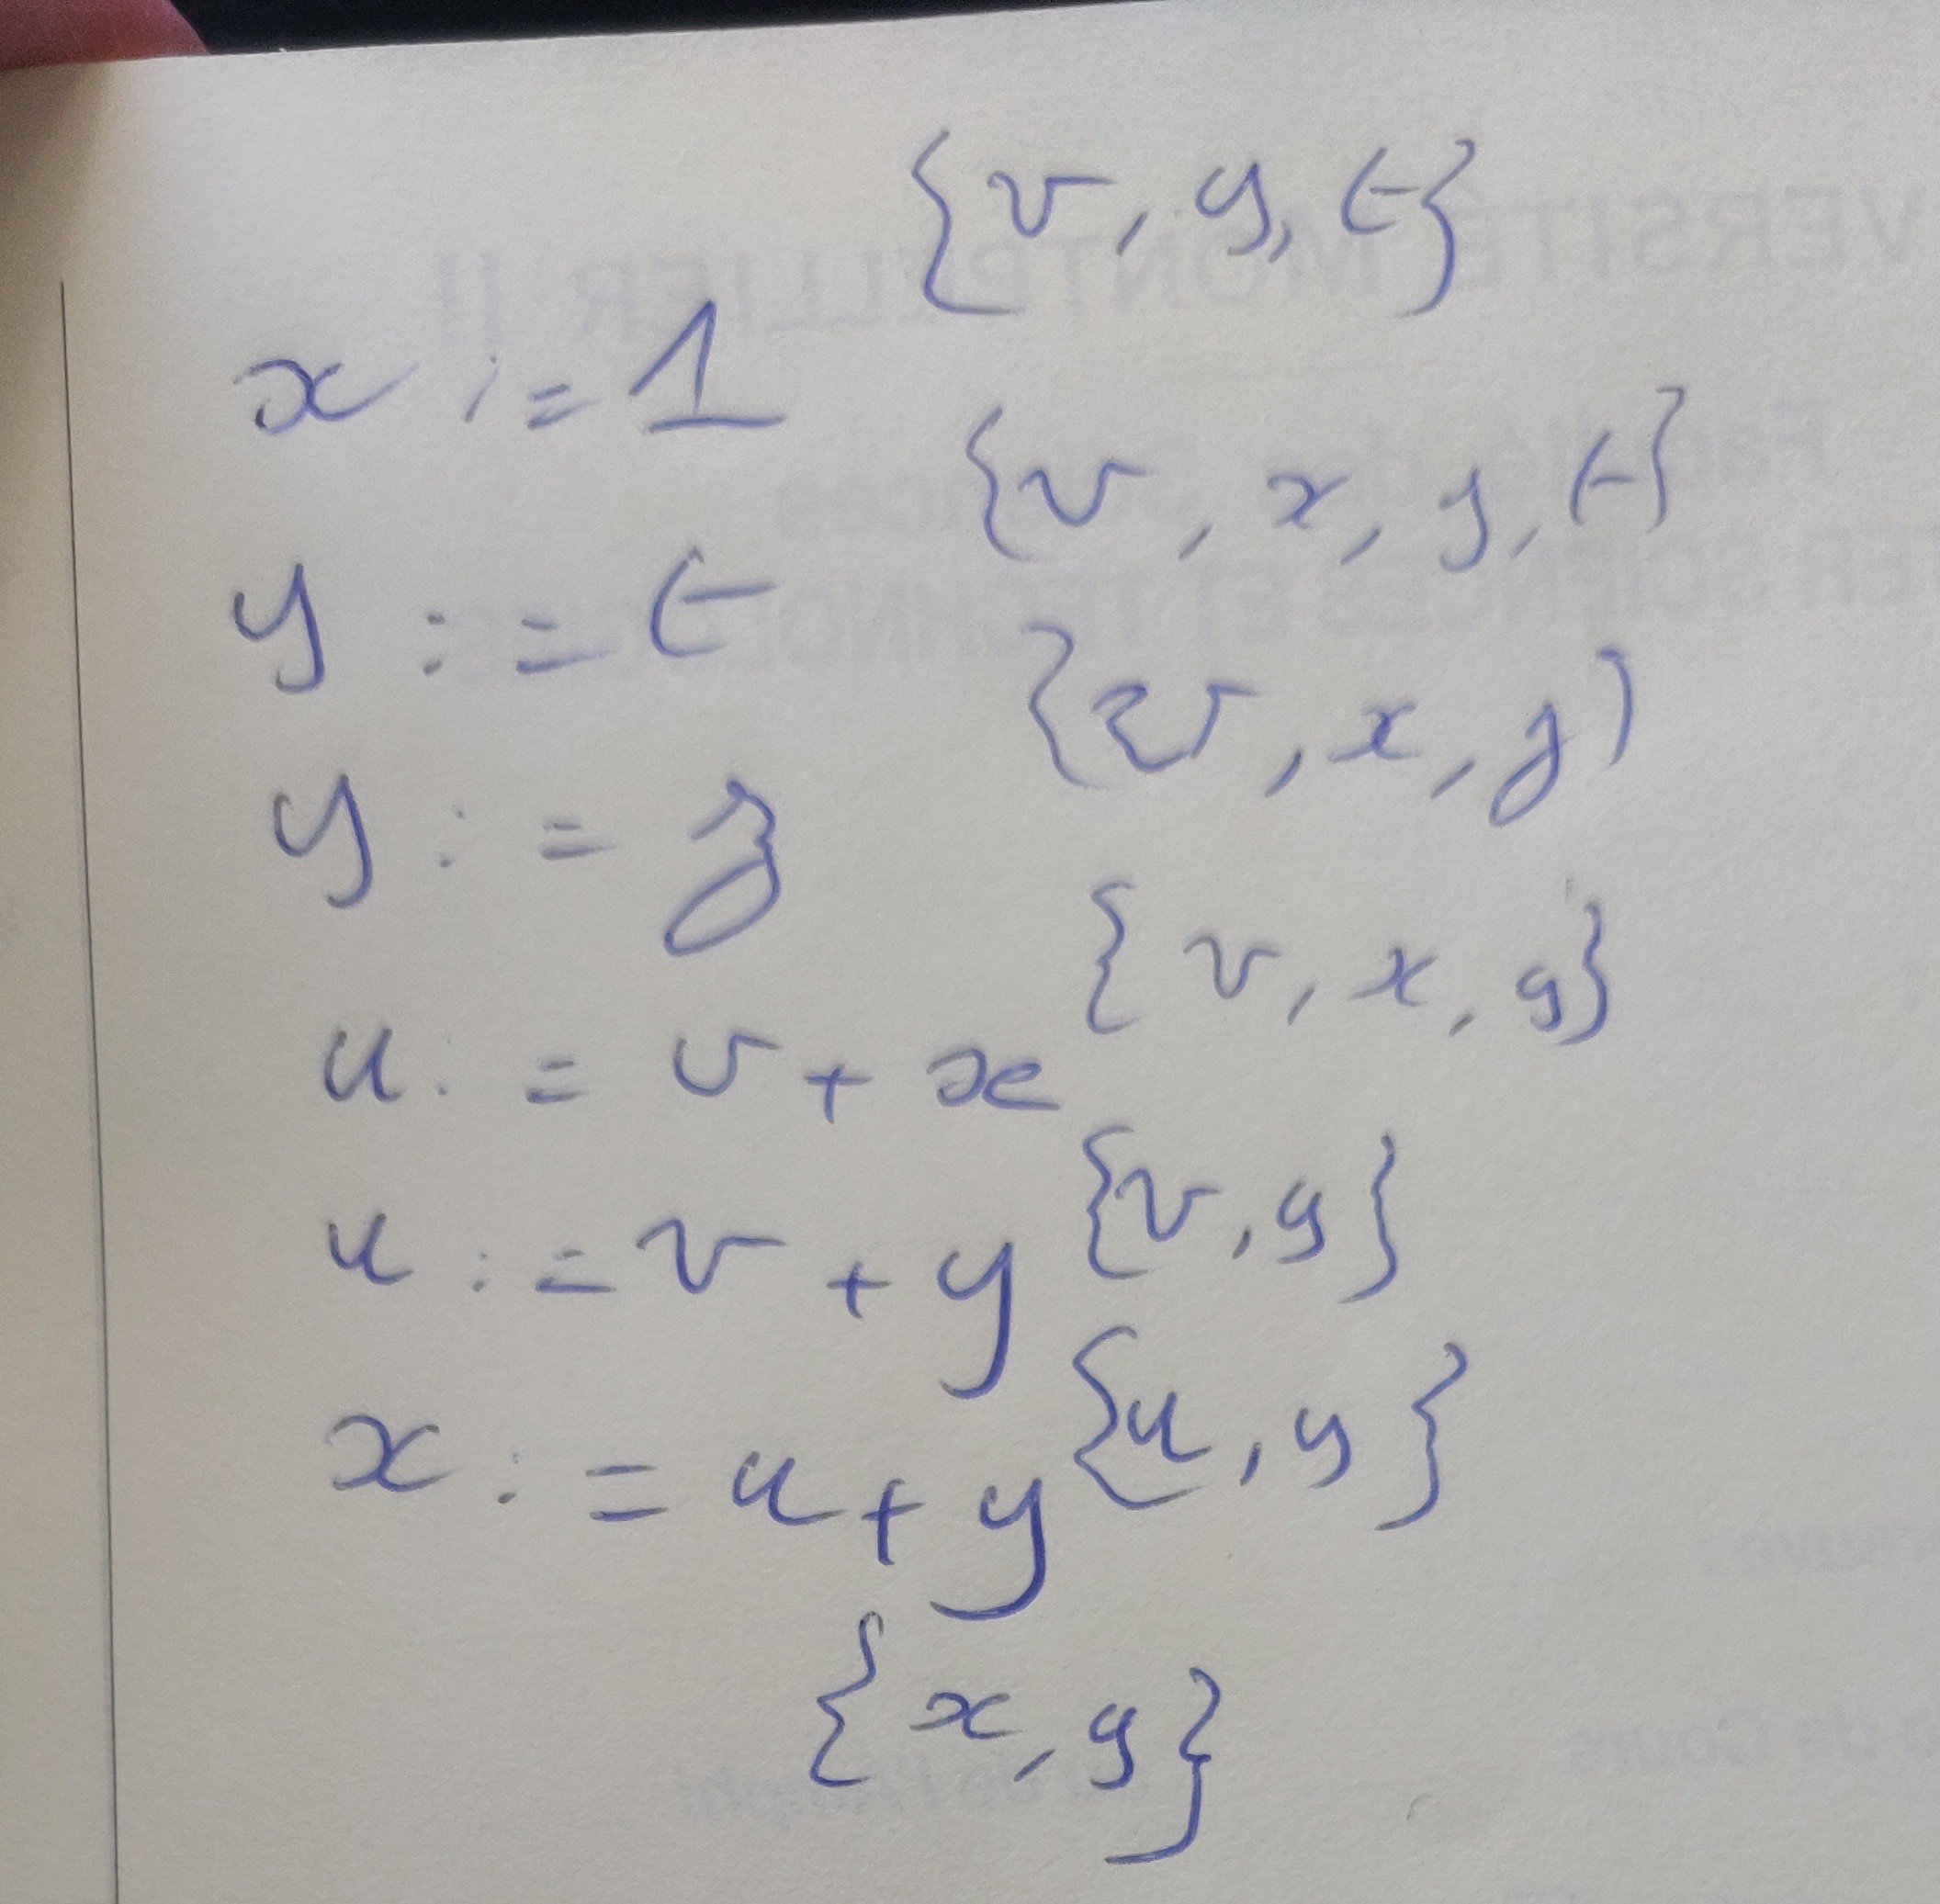 {v, y, t}
x := 1
{v, x, z, t}
y := t
{v, x, z}
y := z
{v, x, y}
u := v + x
{v, y}
u := v + y
{u, y}
x := u + y
{x, y}